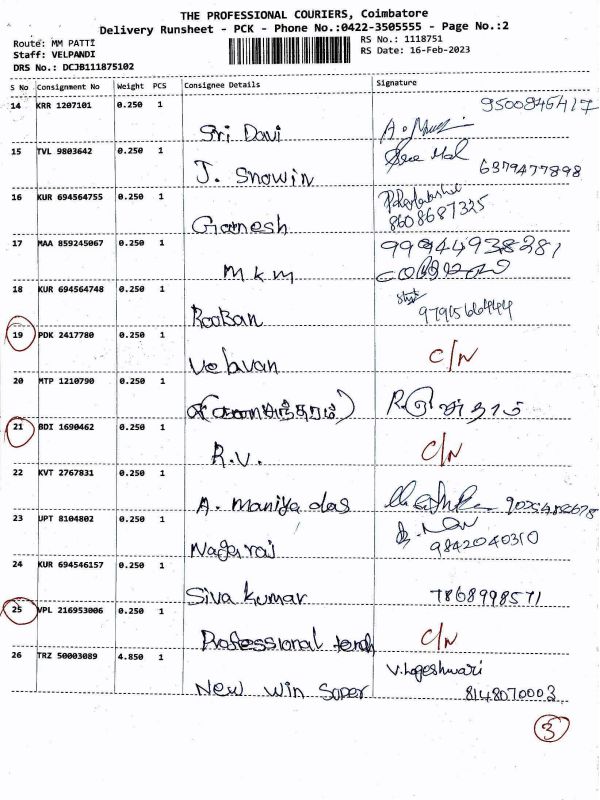 THE PROFESSIONAL COURIERS, Coimbatore
Delivery Runsheet - PCK - Phone No.:0422-3505555 - Page No.:2
Route: MM PATTI
Staff: VELPANDI
DRS No.: DCJB111875102
RS No.: 1118751
RS Date: 16-Feb-2023
S No Consignment No Weight PCS Consignee Details Signature
14 KRR 1207101 0.250 1 Sri Davi 9500845417
15 TVL 9803642 0.250 1 J. Snowin 6379477898
16 KUR 694564755 0.250 1 Ganesh 8608687325
17 MAA 859245067 0.250 1 mkm 99944938281
18 KUR 694564748 0.250 1 Rooban 9791566444
19 PDK 2417780 0.250 1 Velavan C/N
20 MTP 1210790 0.250 1
21 BDI 1690462 0.250 1 R.V. C/N
22 KVT 2767831 0.250 1 A. maniya das
23 UPT 8104802 0.250 1 Nagaraj 9842040310
24 KUR 694546157 0.250 1 Siva kumar 7868998571
25 VPL 216953006 0.250 1 Professional C/N
26 TRZ 50003089 4.850 1 New win Soper V. Logeshwari 8148070003
3